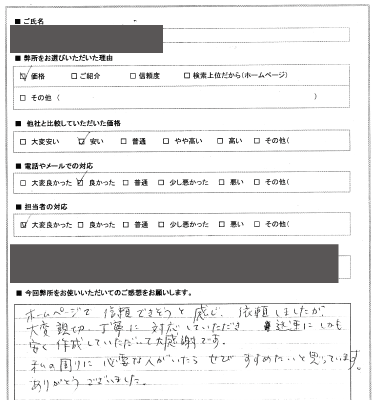 ■ ご氏名
■ 弊所をお選びいただいた理由
☑ 価格 □ ご紹介 □ 信頼度 □ 検索上位だから(ホームページ)
□ その他 ( )
■ 他社と比較していただいた価格
□ 大変安い ☑ 安い □ 普通 □ やや高い □ 高い □ その他(
■ 電話やメールでの対応
□ 大変良かった ☑ 良かった □ 普通 □ 少し悪かった □ 悪い □ その他(
■ 担当者の対応
☑ 大変良かった □ 良かった □ 普通 □ 少し悪かった □ 悪い □ その他(
■ 今回弊所をお使いいただいてのご感想をお願いします。
ホームページで 信頼できそうと感じ、依頼しましたが、
大変 親切、丁寧に 対応していただき 迅速に しかも
安く 作成していただいて大感謝です。
私の周りに 必要な人がいたら ぜひ すすめたいと思っています。
ありがとう ございました。